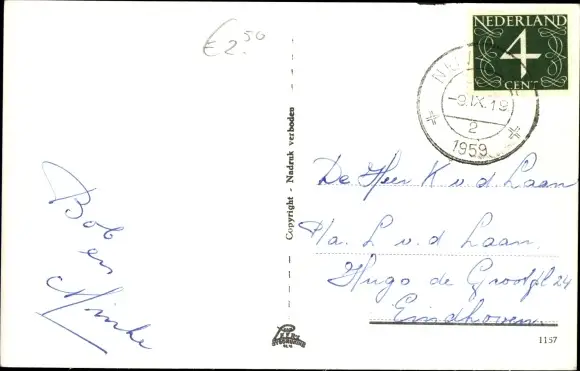 €2.50
NEDERLAND
4
CENT
-9.IX.19
2
1959
Copyright - Nadruk verboden
Bob
en
Minke
De Heer K v.d. Laan
P/a. L v.d Laan.
Hugo de Grootpl 24
Eindhoven.
1157